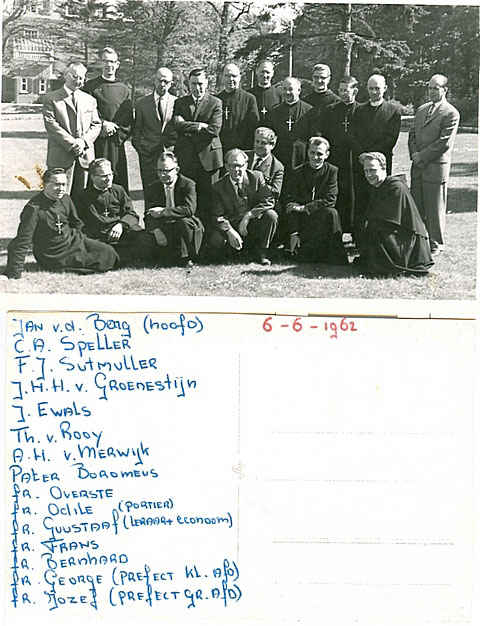 JAN v.d. Berg (hoofd)
6-6-1962
C.A. SPELLER
F.J. SUTMULLER
J.H.H. v. GROENESTIJN
J. EWALS
Th. v. Rooy
A.H. v. MERWIJK
PATER BOROMEUS
fR. OVERSTE
fR. ODILE (PORTIER)
fR. GUUSTAAf (LERAAR + econoom)
fR. FRANS
fR. BERNHARD
fR. GEORGE (PREFECT KL. AfD)
fR. JOZEf (PREFECT GR. AfD)